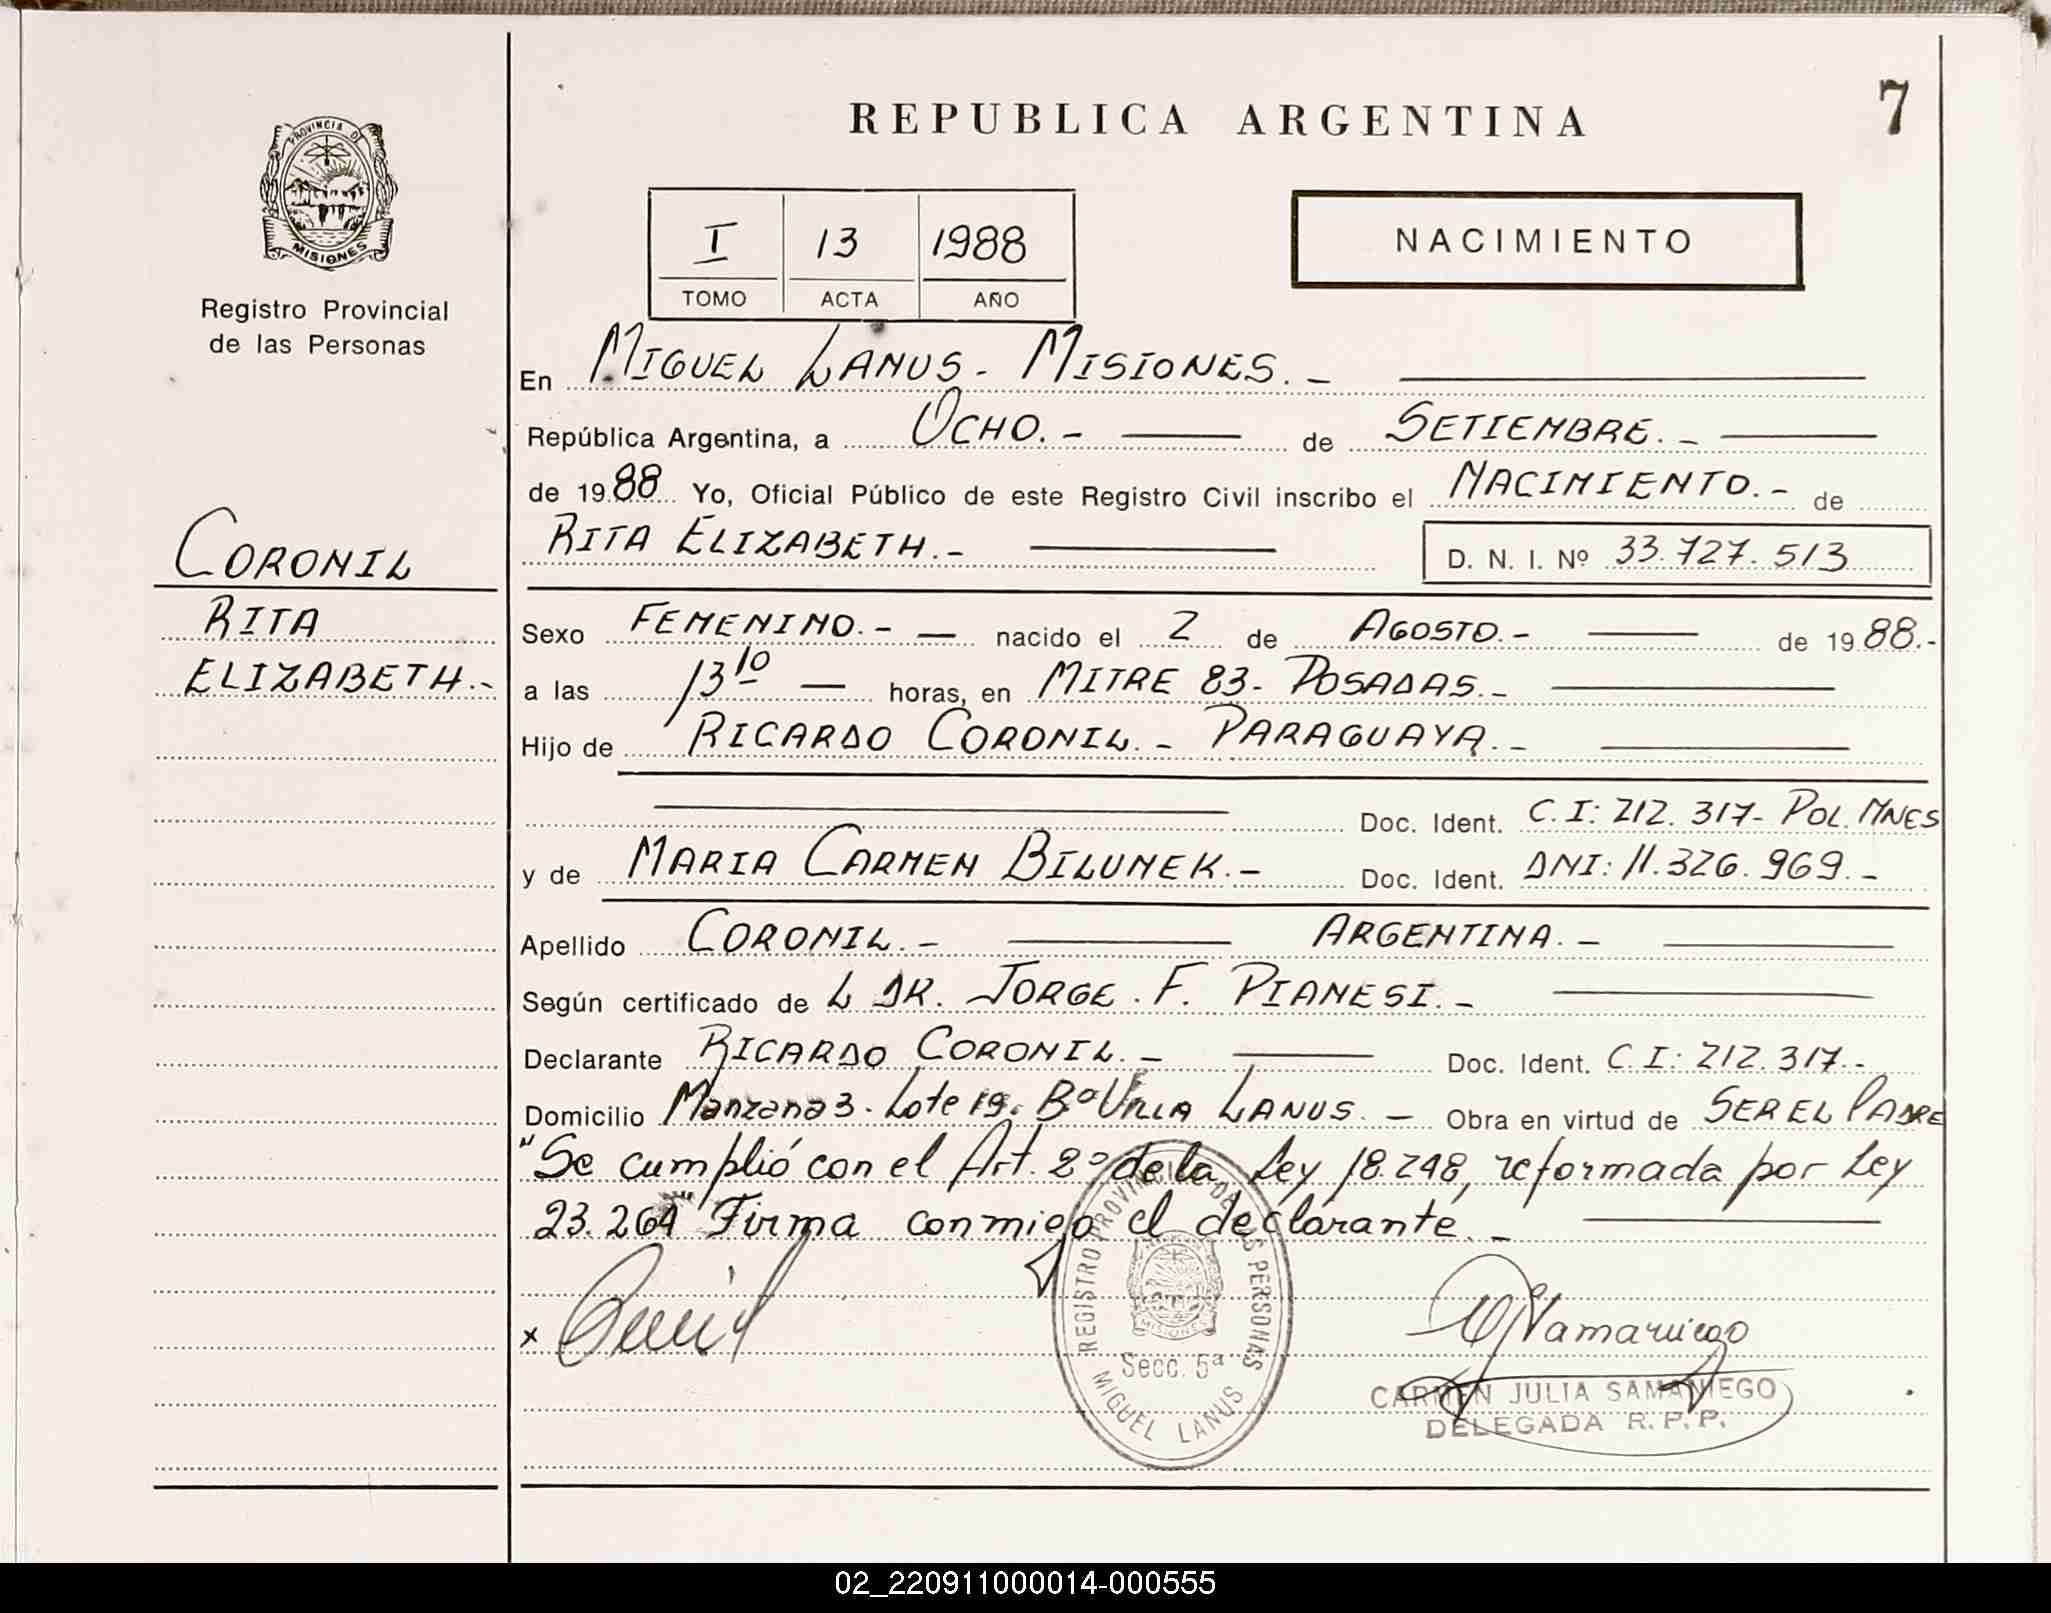 REPUBLICA ARGENTINA
7
PROVINCIA DE
MISIONES
Registro Provincial
de las Personas
I 13 1988
TOMO ACTA AÑO
NACIMIENTO
En MIGUEL LANUS - MISIONES.-
República Argentina, a OCHO.- de SETIEMBRE.-
de 1988 Yo, Oficial Público de este Registro Civil inscribo el NACIMIENTO.- de
RITA ELIZABETH.- D. N. I. Nº 33.727.513
CORONIL
RITA
ELIZABETH.-
Sexo FEMENINO.- nacido el 2 de AGOSTO.- de 1988.-
a las 13 10 horas, en MITRE 83- POSADAS.-
Hijo de RICARDO CORONIL.- PARAGUAYA.-
Doc. Ident. C.I: 212.317- POL. MNES
y de MARIA CARMEN BILUMEK.- Doc. Ident. DNI: 11.326.969.-
Apellido CORONIL.- ARGENTINA.-
Según certificado de L DR. JORGE. F. PIANESI.-
Declarante RICARDO CORONIL.- Doc. Ident. C.I: 212.317.-
Domicilio Manzana 3. Lote 19. Bº VILLA LANUS.- Obra en virtud de SER EL PADRE
"Se cumplió con el Art. 2º de la Ley 18.248, reformada por Ley
23.264" Firma conmigo el declarante.-
x
REGISTRO PROVINCIAL DE LAS PERSONAS
MISIONES
Secc. 5ª
MIGUEL LANUS
CARMEN JULIA SAMANIEGO
DELEGADA R.P.P.
02_220911000014-000555